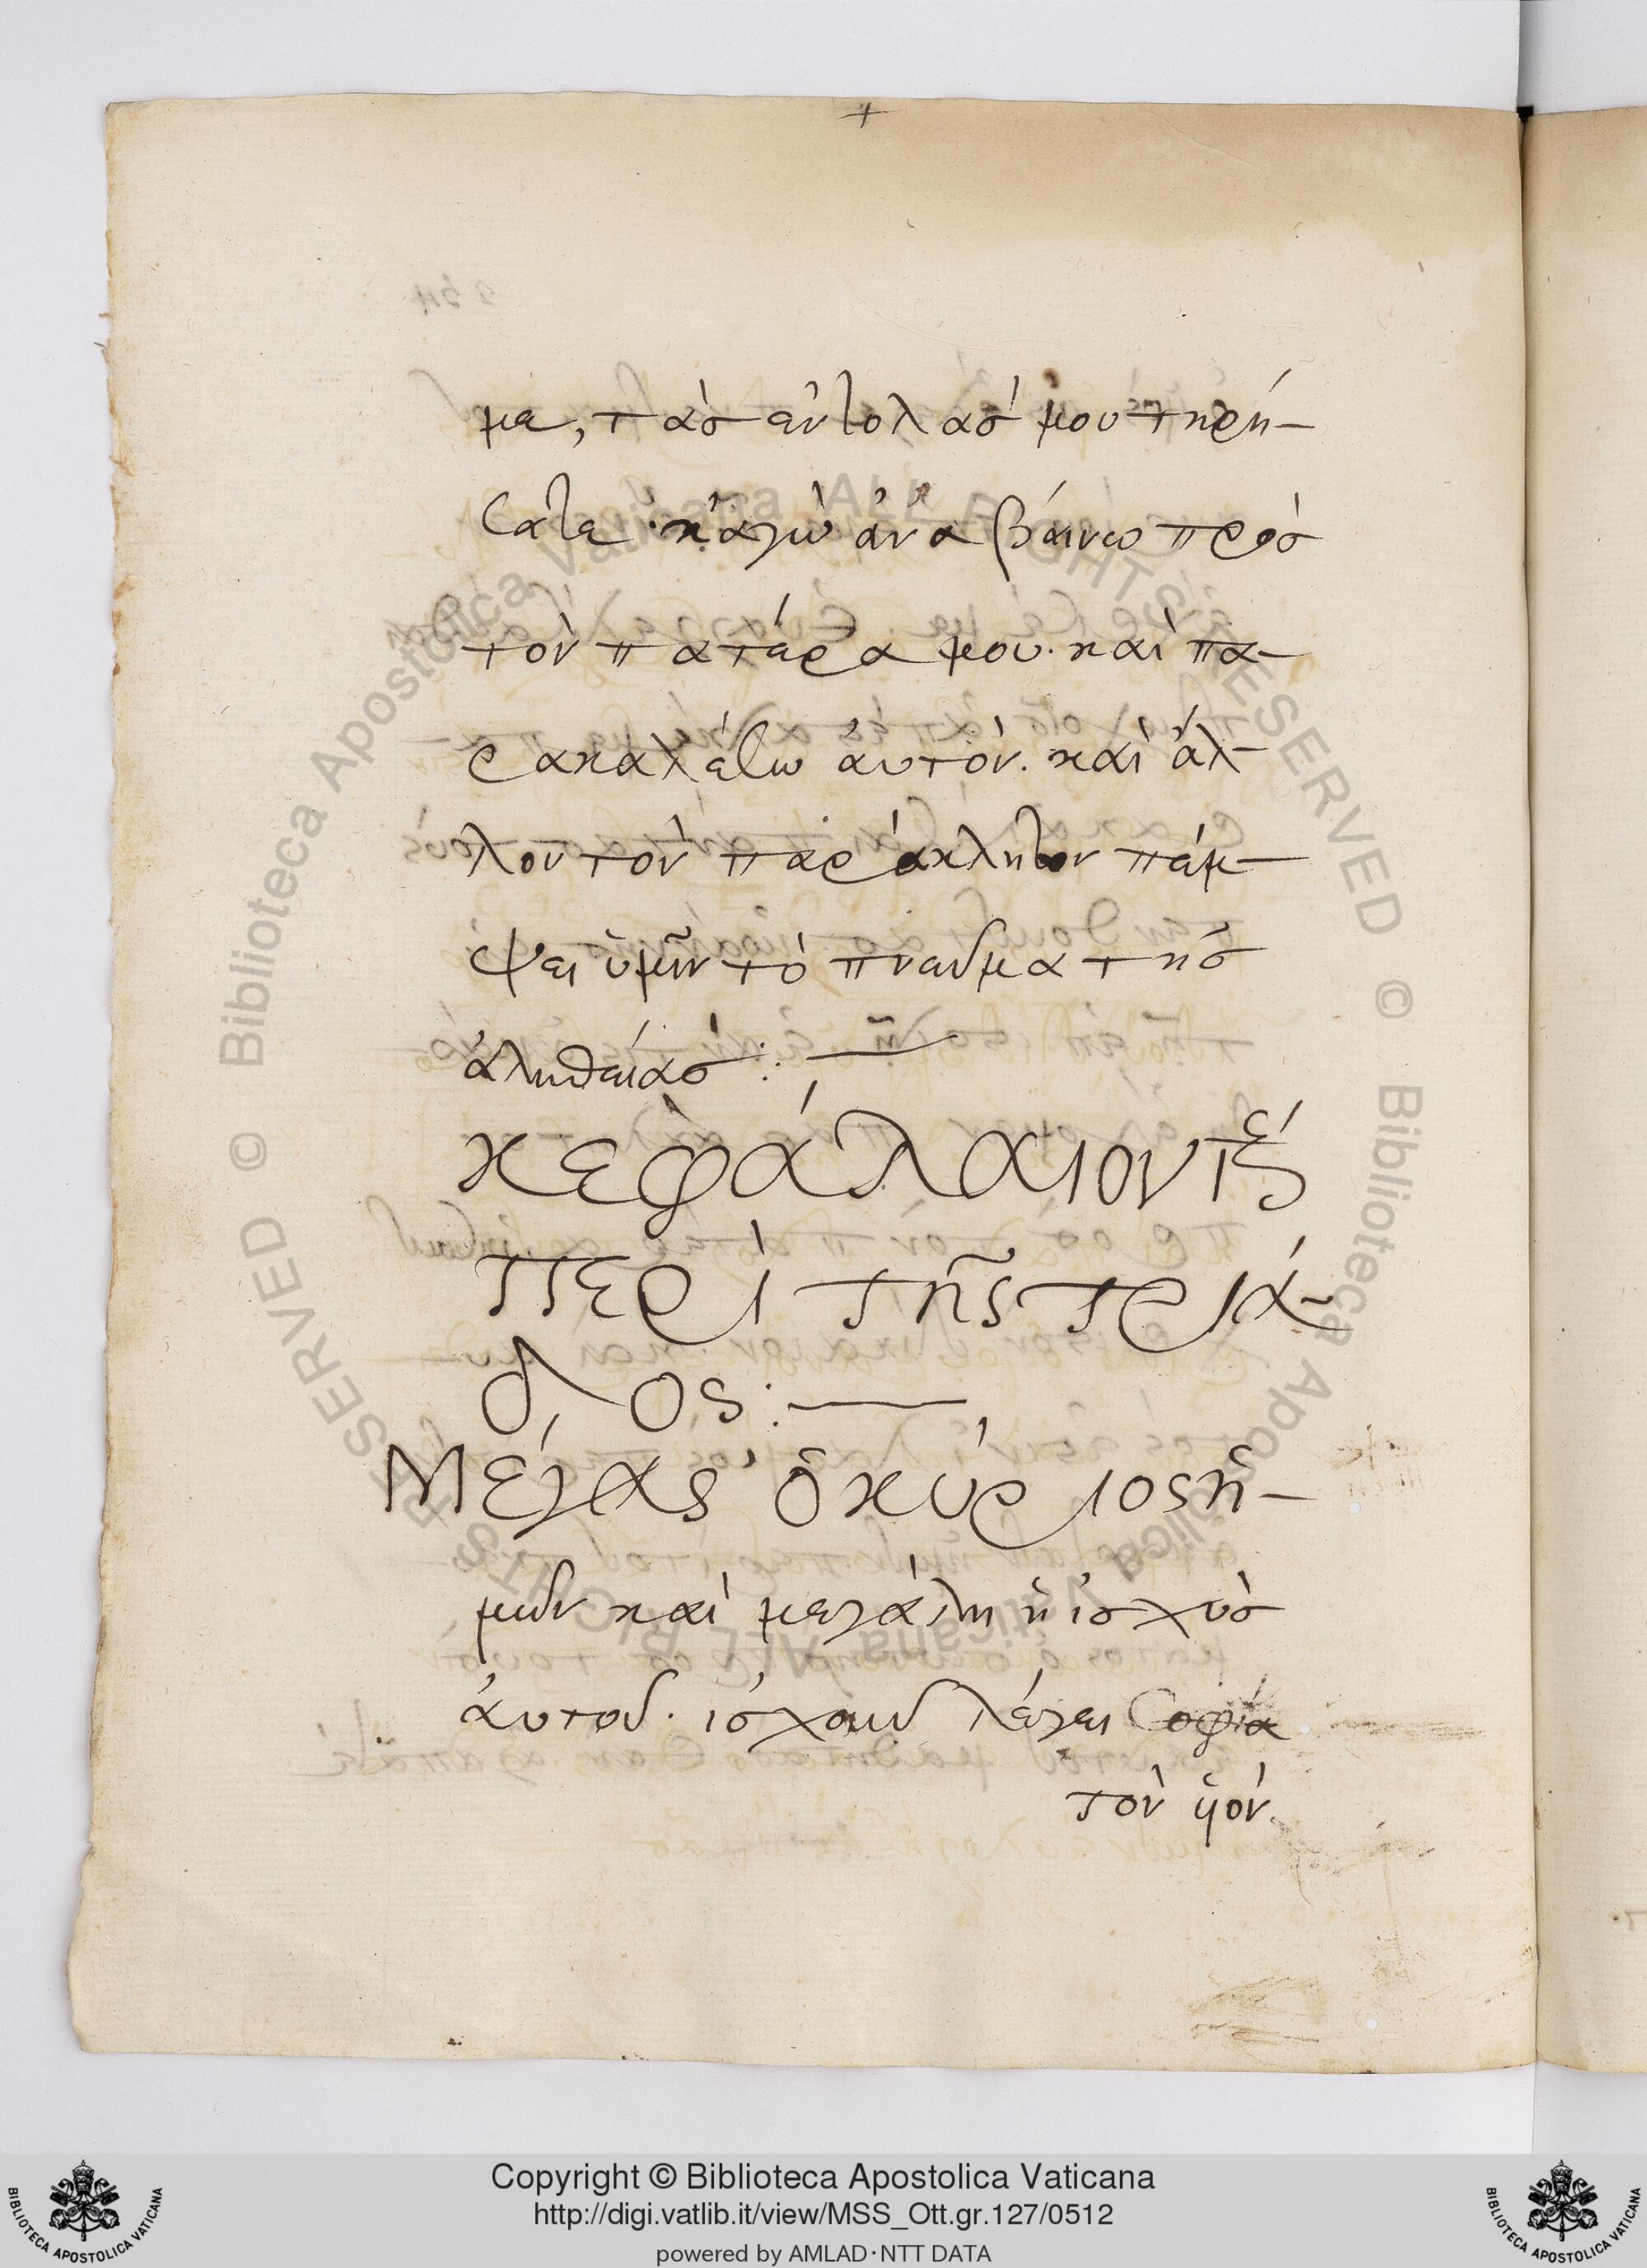 +
με, τὰσ ἐντολάσ μου τηρή-
σατε· κἀγὼ ἀναβαίνω πρὸσ
τὸν πατέρα μου. καὶ πα-
ρακαλέσω ἀυτὸν. καὶ ἄλ-
λον τὸν παράκλητον πέμ-
ψει ὑμῖν τὸ πνεῦμα τῆσ
ἀληθείασ:—
κεφάλαιον
περὶ τῆς τριά-
δος:—
Μέγας ὁ κύριος ἡ-
μῶν καὶ μεγάλη ἡ ἰσχὺσ
ἀυτοῦ. ἰσχοῦν λέγει σοφία
τὸν ὑὸν.
Copyright © Biblioteca Apostolica Vaticana
http://digi.vatlib.it/view/MSS_Ott.gr.127/0512
powered by AMLAD·NTT DATA
BIBLIOTECA APOSTOLICA VATICANA
BIBLIOTECA APOSTOLICA VATICANA
© Biblioteca Apostolica Vaticana ALL RIGHTS RESERVED
© Biblioteca Apostolica Vaticana ALL RIGHTS RESERVED